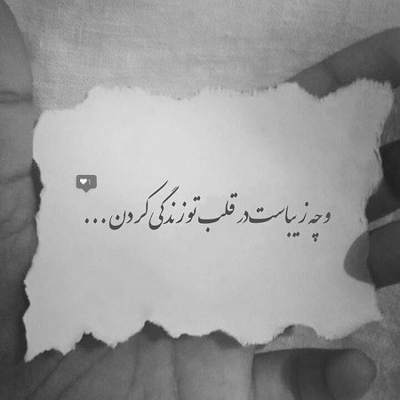 و چه زیباست در قلب تو زندگی کردن ...